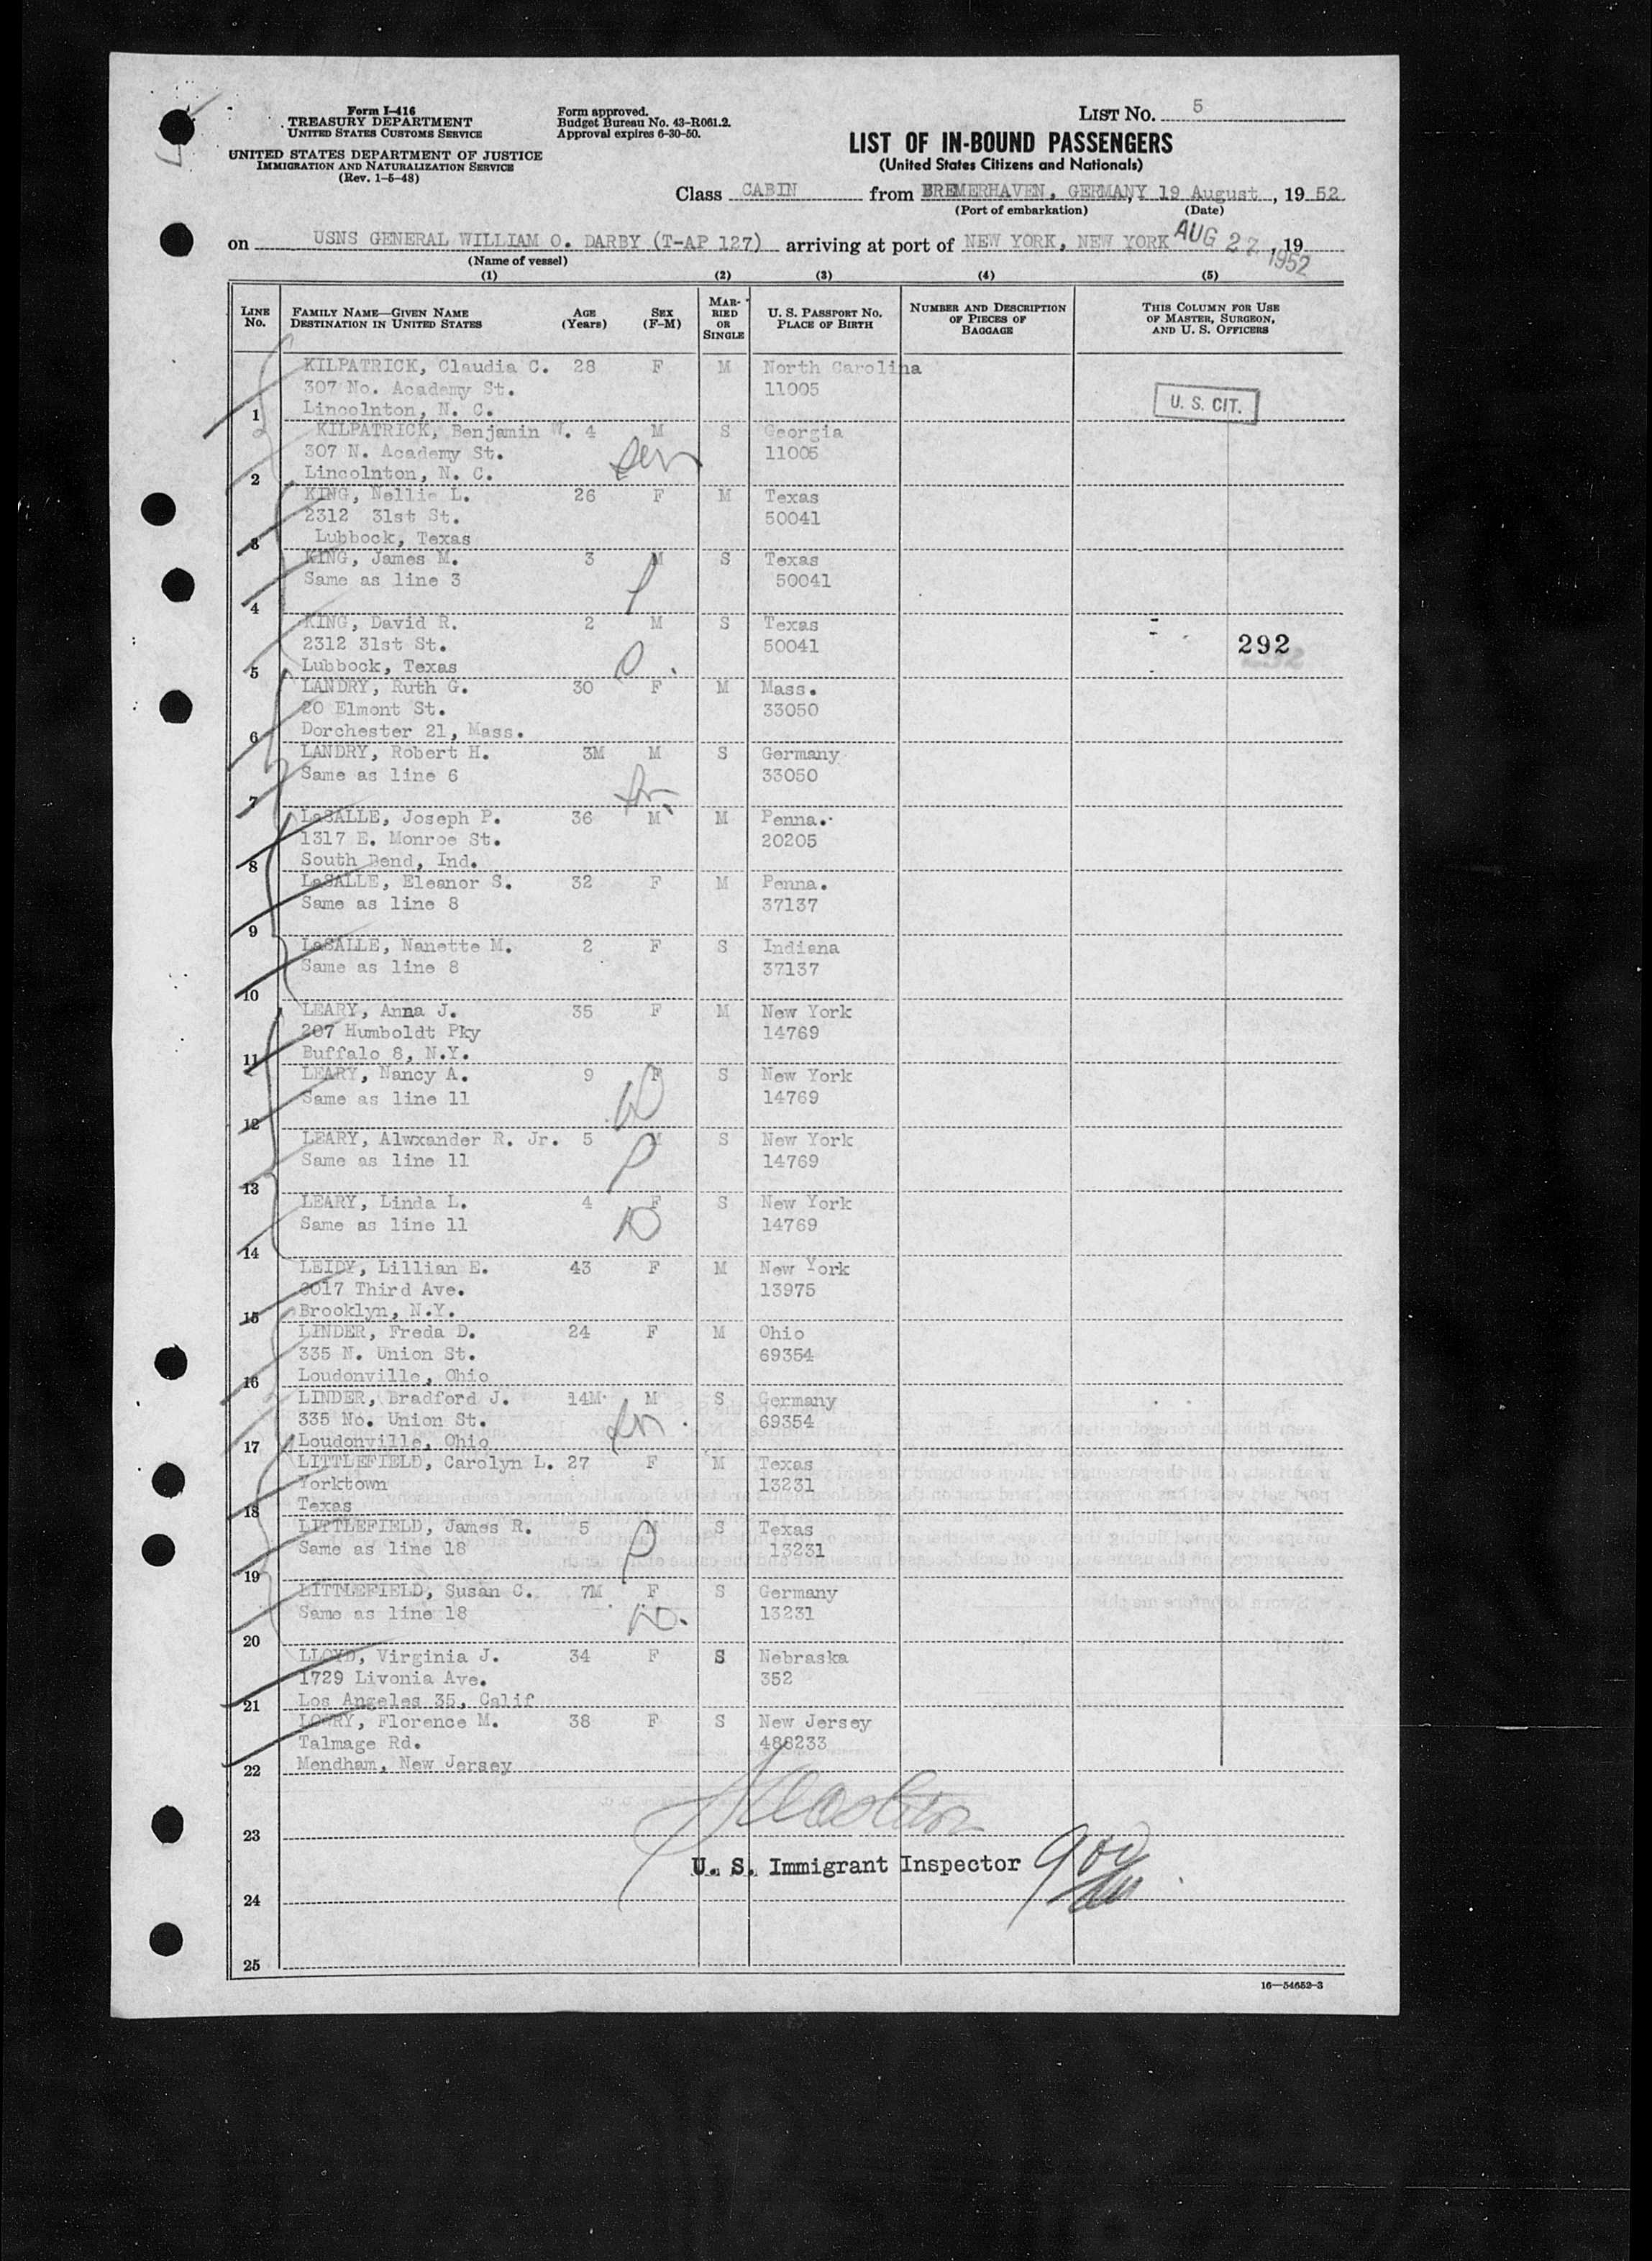 Form I-416
TREASURY DEPARTMENT
UNITED STATES CUSTOMS SERVICE
UNITED STATES DEPARTMENT OF JUSTICE
IMMIGRATION AND NATURALIZATION SERVICE
(Rev. 1-5-48)
Form approved.
Budget Bureau No. 43-R061.2.
Approval expires 6-30-50.
LIST No. 5
LIST OF IN-BOUND PASSENGERS
(United States Citizens and Nationals)
Class CABIN from BREMERHAVEN, GERMANY, 19 August, 19 52
(Port of embarkation) (Date)
on USNS GENERAL WILLIAM O. DARBY (T-AP 127) arriving at port of NEW YORK, NEW YORK AUG 27 1952, 19
(Name of vessel)
(1) (2) (3) (4) (5)
LINE No. FAMILY NAME—GIVEN NAME DESTINATION IN UNITED STATES AGE (Years) SEX (F-M) MARRIED OR SINGLE U. S. PASSPORT No. PLACE OF BIRTH NUMBER AND DESCRIPTION OF PIECES OF BAGGAGE THIS COLUMN FOR USE OF MASTER, SURGEON, AND U. S. OFFICERS
KILPATRICK, Claudia C. 28 F M North Carolina
307 No. Academy St. 11005
1 Lincolnton, N. C.
U. S. CIT.
KILPATRICK, Benjamin W. 4 M S Georgia
307 N. Academy St. 11005
2 Lincolnton, N. C.
KING, Nellie L. 26 F M Texas
2312 31st St. 50041
3 Lubbock, Texas
KING, James M. 3 M S Texas
Same as line 3 50041
4
KING, David R. 2 M S Texas
2312 31st St. 50041 292
5 Lubbock, Texas
LANDRY, Ruth G. 30 F M Mass.
20 Elmont St. 33050
6 Dorchester 21, Mass.
LANDRY, Robert H. 3M M S Germany
Same as line 6 33050
7
LaSALLE, Joseph P. 36 M M Penna.
1317 E. Monroe St. 20205
8 South Bend, Ind.
LaSALLE, Eleanor S. 32 F M Penna.
Same as line 8 37137
9
LaSALLE, Nanette M. 2 F S Indiana
Same as line 8 37137
10
LEARY, Anna J. 35 F M New York
207 Humboldt Pky 14769
11 Buffalo 8, N.Y.
LEARY, Nancy A. 9 F S New York
Same as line 11 14769
12
LEARY, Alwxander R. Jr. 5 M S New York
Same as line 11 14769
13
LEARY, Linda L. 4 F S New York
Same as line 11 14769
14
LEIDY, Lillian E. 43 F M New York
6017 Third Ave. 13975
15 Brooklyn, N.Y.
LINDER, Freda D. 24 F M Ohio
335 N. Union St. 69354
16 Loudonville, Ohio
LINDER, Bradford J. 14M M S Germany
335 No. Union St. 69354
17 Loudonville, Ohio
LITTLEFIELD, Carolyn L. 27 F M Texas
Yorktown 13231
18 Texas
LITTLEFIELD, James R. 5 M S Texas
Same as line 18 13231
19
LITTLEFIELD, Susan C. 7M F S Germany
Same as line 18 13231
20
LLOYD, Virginia J. 34 F S Nebraska
1729 Livonia Ave. 352
21 Los Angeles 35, Calif
LOWRY, Florence M. 38 F S New Jersey
Talmage Rd. 488233
22 Mendham, New Jersey
23
U. S. Immigrant Inspector
24
25
16—54652-3